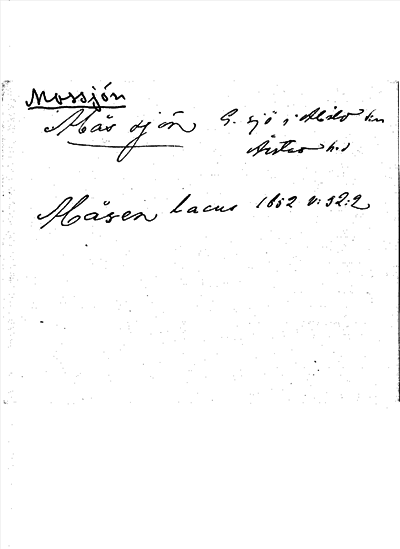 Mossjön
Mås sjön G. sjö i Alsbo sn
Åkerbo hd
Måsen lacus 1652 V: 52:2